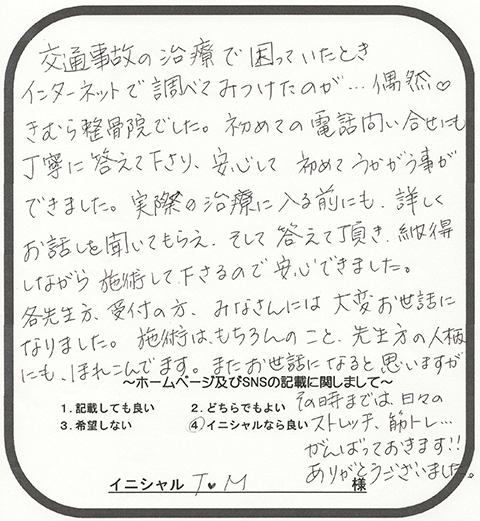 交通事故の治療で困っていたとき
インターネットで調べてみつけたのが…偶然♡
きむら整骨院でした。初めての電話問い合せにも
丁寧に答えて下さり、安心して初めてうかがう事が
できました。実際の治療に入る前にも、詳しく
お話しを聞いてもらえ、そして答えて頂き、納得
しながら施術して下さるので安心できました。
各先生方、受付の方、みなさんには大変お世話に
なりました。施術は、もちろんのこと、先生方の人柄
にも、ほれこんでます。またお世話になると思いますが
～ホームページ及びSNSの記載に関しまして～
1. 記載しても良い 2. どちらでもよい
3. 希望しない ④イニシャルなら良い
その時までは、日々の
ストレッチ、筋トレ…
がんばっておきます!!
ありがとうございました。
イニシャル T♥M 様